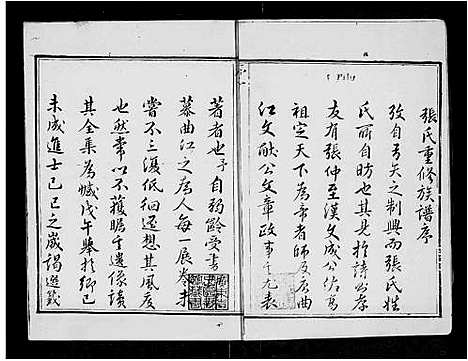 張氏重修族譜序
攷自弓矢之制興而張氏姓
氏所自昉也其見於詩曰孝
友有張仲至漢文成公佐高
祖定天下為帝者師及唐曲
江文獻公文章政事之尤表
著者也予自弱齡受書
慕曲江之為人每一展卷未
嘗不三復低徊遐想其風度
也然常以不獲瞻手遺像讀
其全集為憾戊午舉於鄉己
未成進士己巳之歲謁選籤